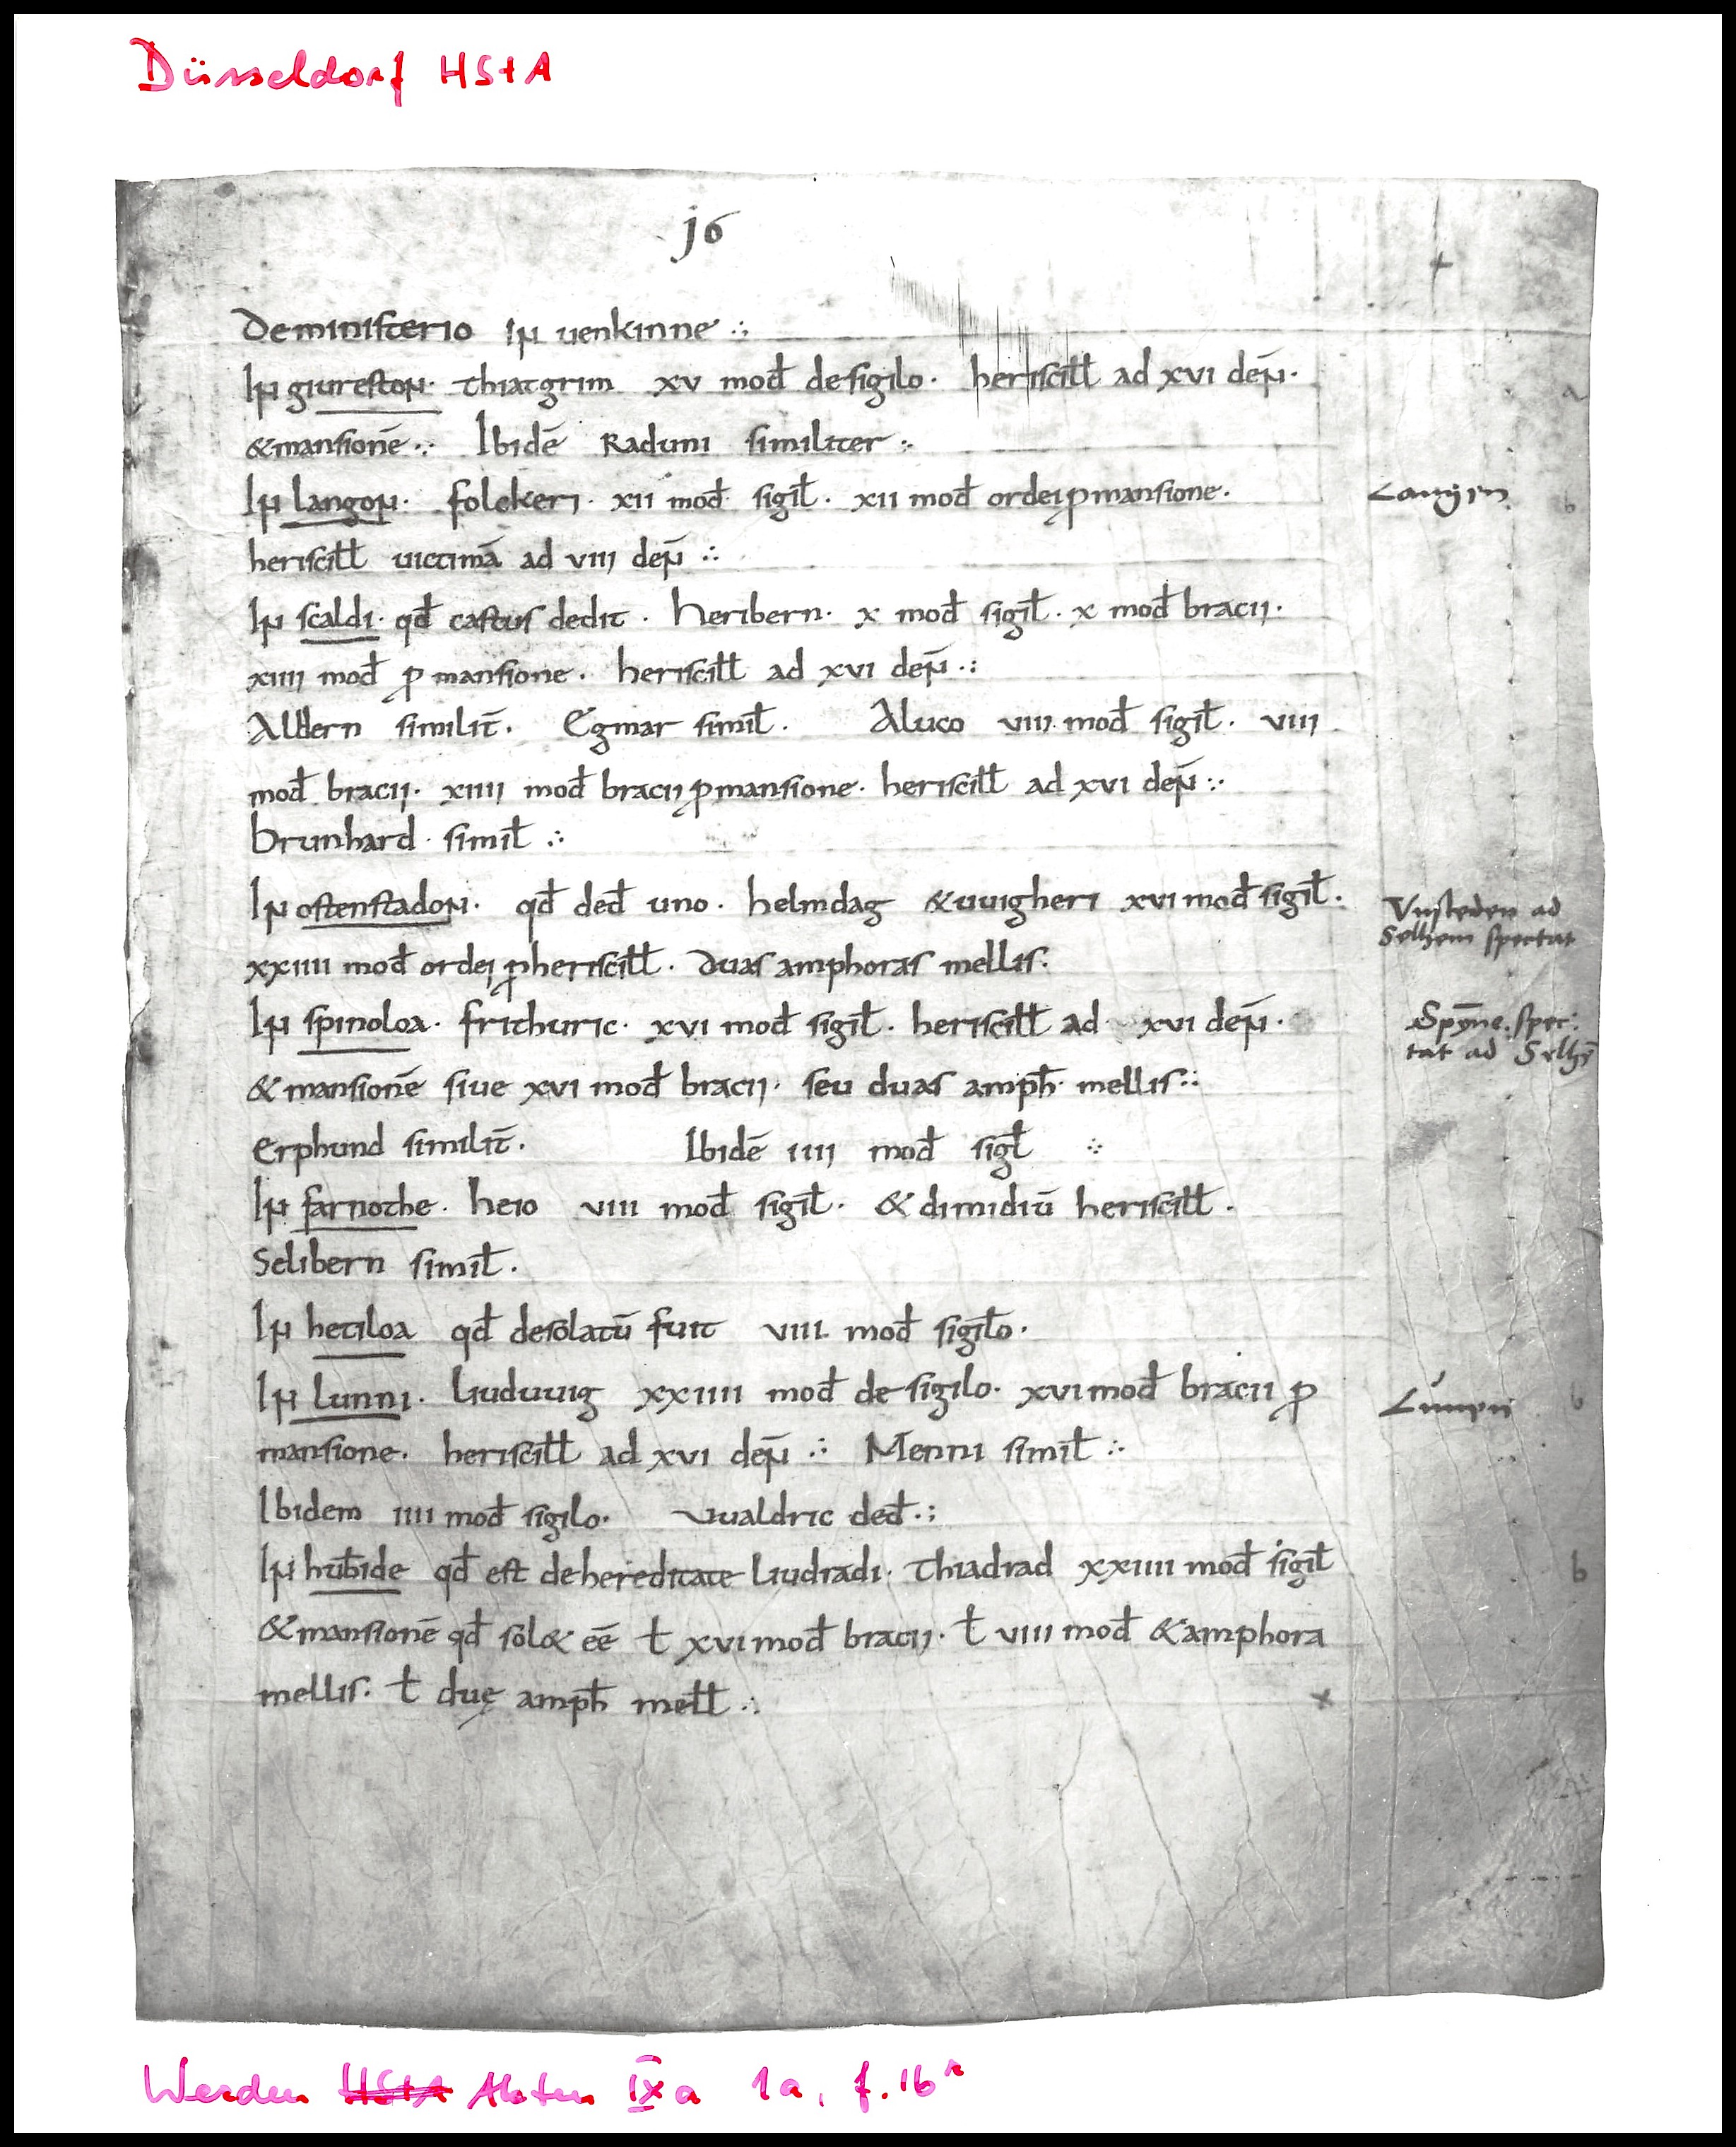 Düsseldorf HStA
j6
De ministerio In uenkinne ∴
In giurefton· thiatgrim xv mod̄ de sigilo· heriscill̄ ad xvi den̄·
& mansionē ∴ Ibidē Raduni similiter ∴
In langon· folckeri· xii mod̄ sigil̄· xii mod̄ ordei ꝓ mansione·
Langen
heriscill̄ uictimā ad viii den̄ ∴
In scaldi· qd̄ castus dedit· heribern· x mod̄ sigil̄· x mod̄ bracii·
xiiii mod̄ ꝓ mansione· heriscill̄ ad xvi den̄ ∴
Aldbern similit̄· Egmar simil̄· Aluco viii mod̄ sigil̄· viii
mod̄ bracii· xiiii mod̄ bracii ꝓ mansione· heriscill̄ ad xvi den̄ ∴
brunhard· simil̄ ∴
In ostenstadon· qd̄ ded̄ uno· helmdag & vuigheri xvi mod̄ sigil̄·
Vnsteden ad
Selhem spectat
xxiiii mod̄ ordei ꝓ heriscill̄· duas amphoras mellis·
In spinoloa· frithuric· xvi mod̄ sigil̄· heriscill̄ ad xvi den̄·
Spȳne· spec:
tat ad Selhē
& mansionē siue xvi mod̄ bracii· seu duas amph̄· mellis ∴
Erphund similit̄· Ibidē iiii mod̄ sigl̄ ∴
In farnothe· heio viii mod̄ sigil̄· & dimidiū heriscill̄·
Selibern simil̄·
In hetiloa qd̄ desolatū fuit viii mod̄ sigilo·
In Lunni· Liuduuig xxiiii mod̄ de sigilo· xvi mod̄ bracii ꝓ
mansione· heriscill̄ ad xvi den̄ ∴ Menni simil̄ ∴
Ibidem iiii mod̄ sigilo· vualdric ded̄ ∴
In hub̄ide qd̄ est de hereditate Liudradi· Thiadrad xxiiii mod̄ sigil̄
b
& mansionē qd̄ sol& eē ł xvi mod̄ bracii· ł viii mod̄ & amphora
mellis· ł duę amph̄ mell̄ ∴
Werden HStA Akten IXa 1a, f. 16r